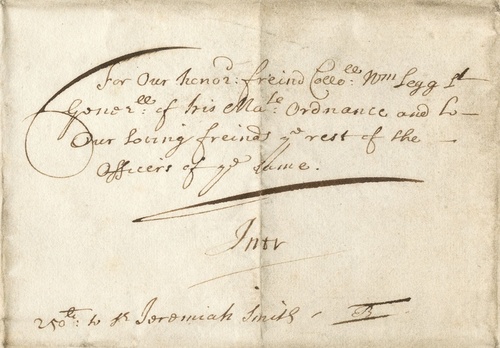 For Our honor:d freind Coll:ll Wm Legg Lt
Gener:ll of his Ma:ts Ordnance and to
Our loving freinds ye rest of the
Officers of ye same.
Intr
250:ll to Sr Jeremiah Smith